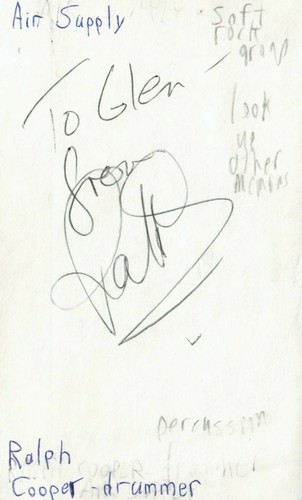 Air Supply
Soft
rock
group
To Glen
look
up
other
from
Ralph
percussion
Ralph
COOPER drummer
Cooper-drummer